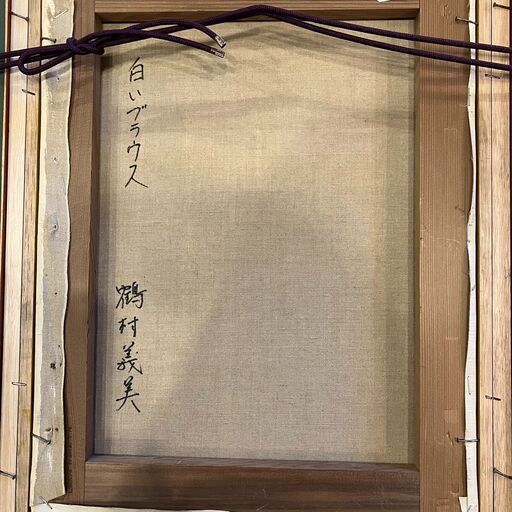 白いブラウス
鶴村義美